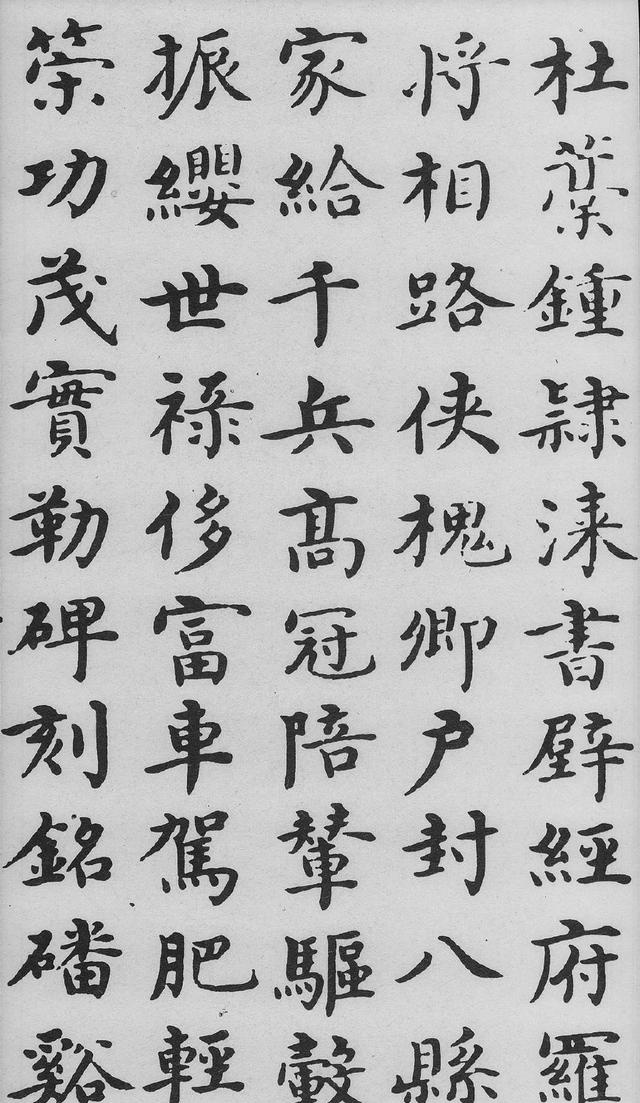 杜稾鍾隸漆書壁經府羅
将相路俠槐卿户封八縣
家給千兵髙冠陪輦驅轂
振纓世禄侈富車駕肥輕
策功茂實勒碑刻銘磻谿